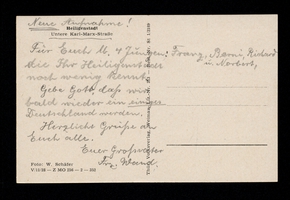 Neue Aufnahme!
Heiligenstadt
Untere Karl-Marx-Straße
Für Euch U. 4 Jungen: Franz, Beni, Richard
u. Norbert,
die Ihr Heiligenstadt
noch wenig kennt.
Gebe Gott, daß wir
bald wieder ein einiges
Deutschland werden.
Herzliche Grüße an
Euch alle.
Euer Großvater
Frz. Wand.
Foto: W. Schäfer